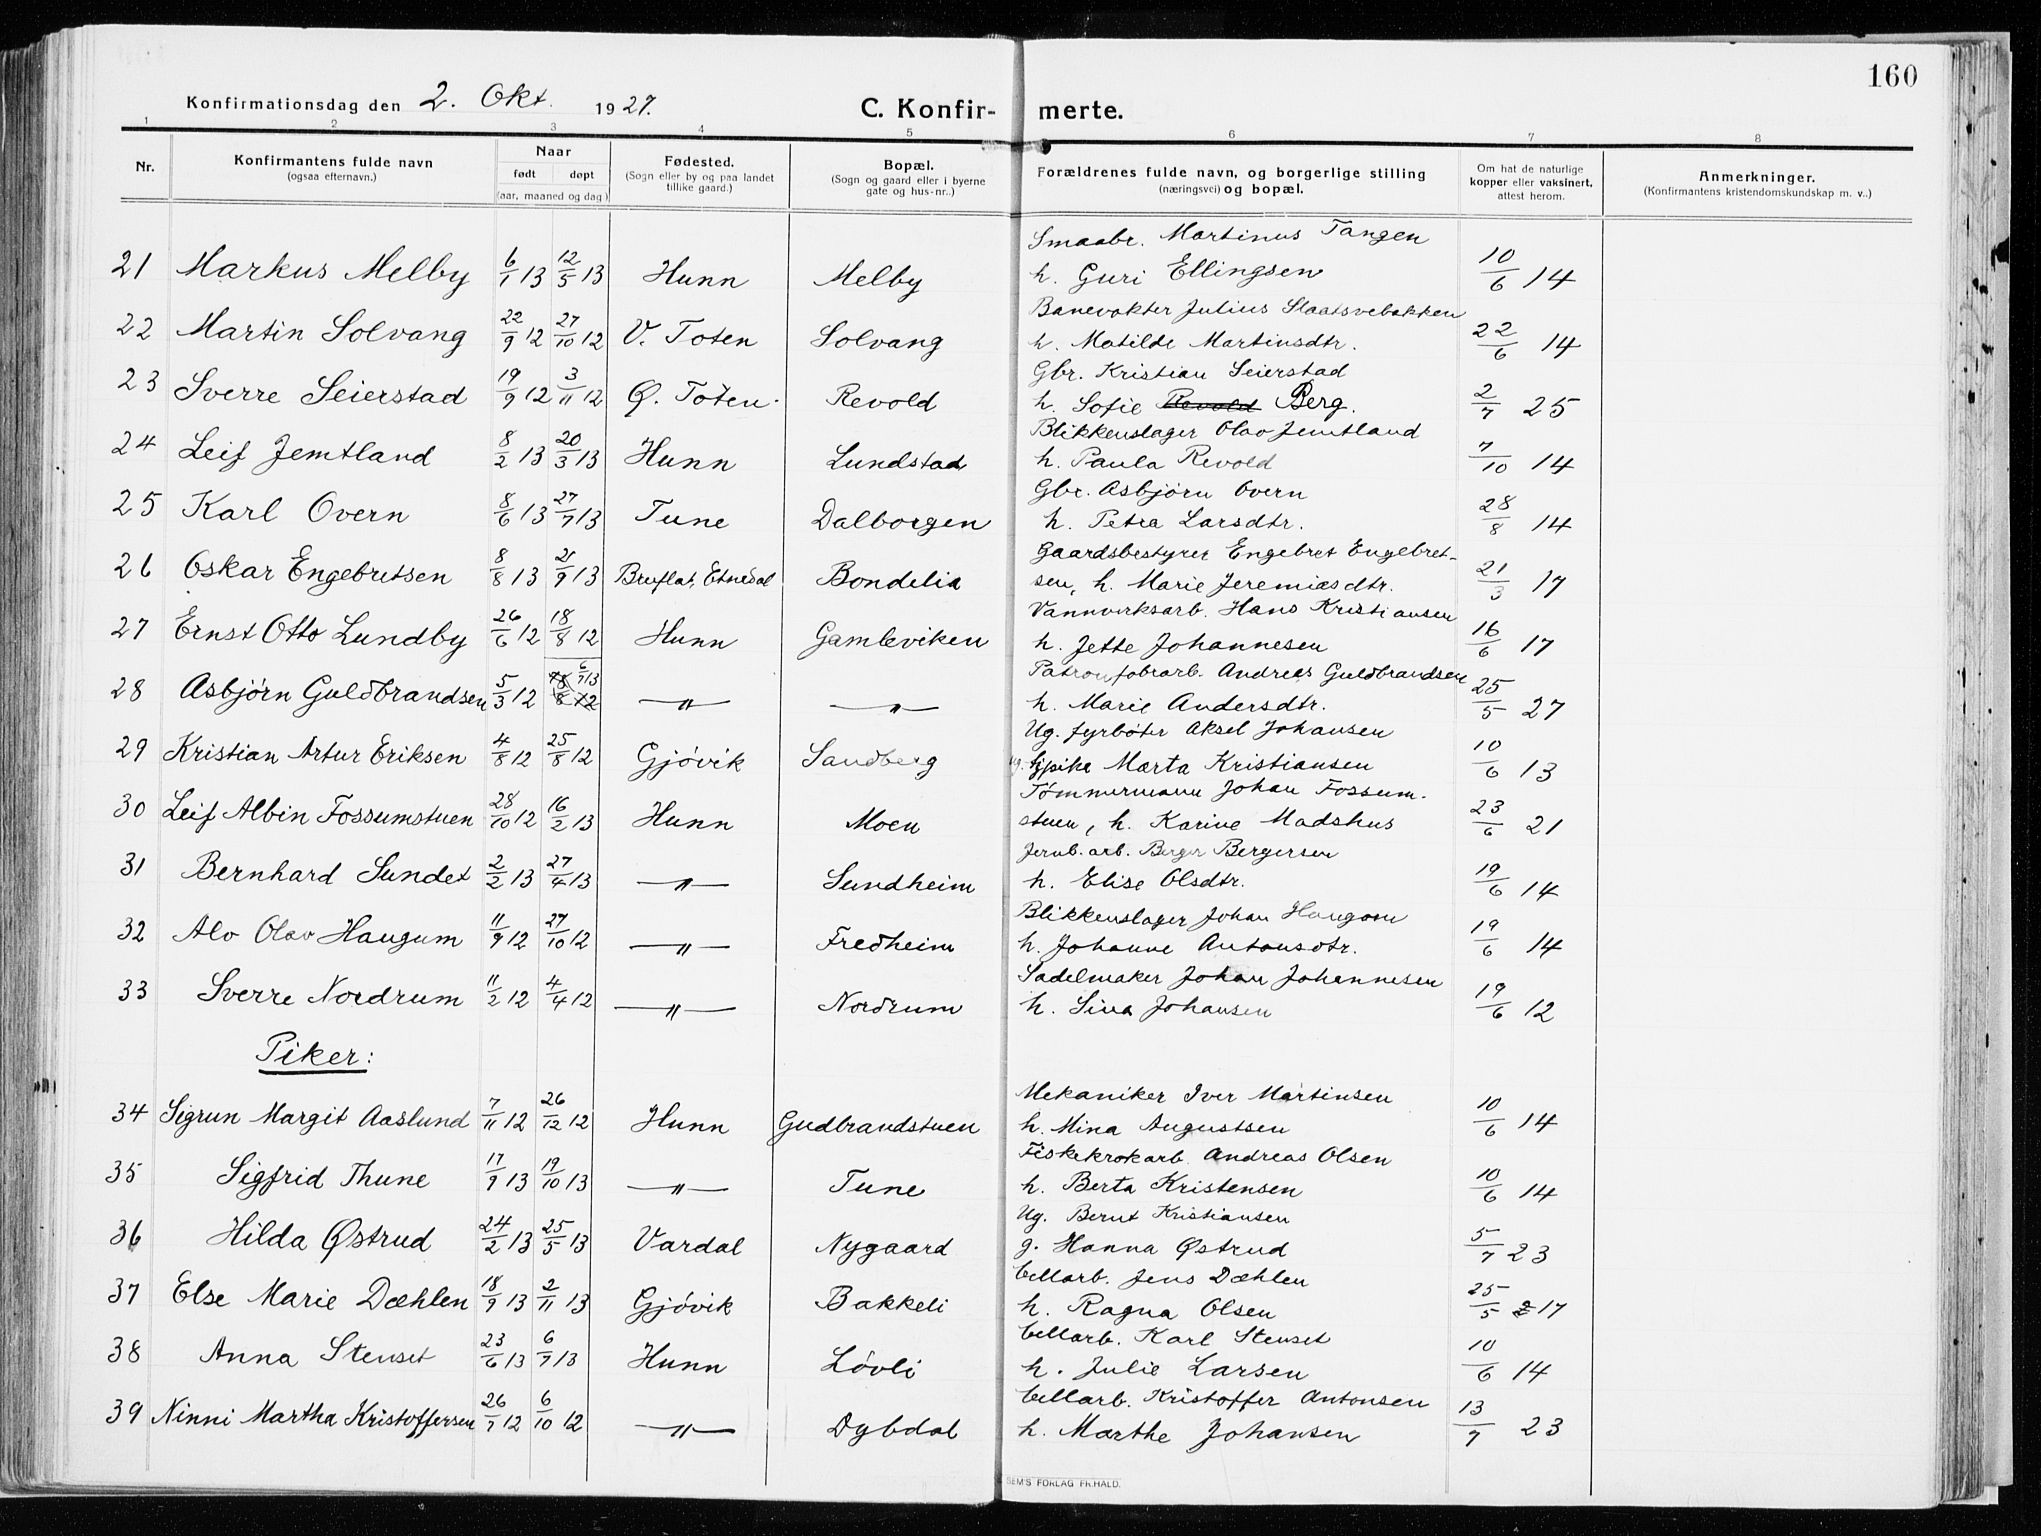 160
Konfirmationsdag den 2. Okt. 1927.
C. Konfir- merte.
1 2 3 4 5 6 7 8
Nr.
Konfirmantens fulde navn
(ogsaa efternavn.)
Naar
født døpt
(aar, maaned og dag)
Fødested.
(Sogn eller by og paa landet
tillike gaard.)
Bopæl.
(Sogn og gaard eller i byerne
gate og hus-nr..)
Forældrenes fulde navn, og borgerlige stilling
(næringsvei) og bopæl.
Om hat de naturlige
kopper eller vaksinert,
attest herom.
Anmerkninger.
(Konfirmantens kristendomskundskap m. v..)
Smaabr. Martinus Tangen
21 Markus Melby 6/1 13 12/5 13 Hunn Melby h. Guri Ellingsen 10/6 14
Banevokter Julius Slaatsvebakken
22 Martin Solvang 22/9 12 27/10 12 V. Toten Solvang h. Matilde Martinsdtr. 22/6 14
Gbr. Kristian Seierstad
23 Sverre Seierstad 19/9 12 3/11 12 Ø. Toten. Revold h. Sofie Revold Berg. 2/7 25
Blikkenslager Olav Jemtland
24 Leif Jemtland 8/2 13 20/3 13 Hunn Lundstad h. Paula Revold 7/10 14
Gbr. Asbjørn Overn
25 Karl Overn 8/6 13 27/7 13 Tune Dalborgen h. Petra Larsdtr. 28/8 14
Gaardsbestyrer Engebret Engebret-
26 Oskar Engebretsen 8/8 13 21/9 13 Bruflat, Etnedal Bondelia sen, h. Marie Jeremiasdtr. 21/3 17
Vannverksarb. Hans Kristiansen
27 Ernst Otto Lundby 26/6 12 18/8 12 Hunn Gamleviken h. Jette Johannesen 16/6 17
Patronfabrarb. Andreas Guldbrandsen
28 Asbjørn Guldbrandsen 5/3 12 18/8 12 6/7 13 —"— —"— h. Marie Andersdtr. 25/5 27
Ug. fyrbøter Aksel Johansen
29 Kristian Artur Eriksen 4/8 12 25/8 12 Gjøvik Sandberg ug. pike Marta Kristiansen 10/6 13
Tømmermann Johan Fossum-
30 Leif Albin Fossumstuen 28/10 12 16/2 13 Hunn Moen stuen, h. Karine Madshus 23/6 21
Jernb. arb. Berger Bergersen
31 Bernhard Sundet 2/2 13 27/4 13 —"— Sundheim h. Elise Olsdtr. 19/6 14
Blikkenslager Johan Haugom
32 Alv Olav Haugum 11/9 12 27/10 12 —"— Fredheim h. Johanne Antonsdtr. 19/6 14
Sadelmaker Johan Johannesen
33 Sverre Nordrum 11/2 12 4/4 12 —"— Nordrum h. Sina Johansen 19/6 12
Piker:
Mekaniker Iver Martinsen
34 Sigrun Margit Aaslund 7/11 12 26/12 12 Hunn Gudbrandstuen h. Mina Augustsen 10/6 14
Fiskekrokarb. Andreas Olsen
35 Sigfrid Thune 17/9 13 19/10 13 —"— Tune h. Berta Kristensen 10/6 14
Ug. Bernt Kristiansen
36 Hilda Østrud 24/2 13 25/5 13 Vardal Nygaard g. Hanna Østrud 5/7 23
Cellarb. Jens Dæhlen
37 Else Marie Dæhlen 18/9 13 2/11 13 Gjøvik Bakkeli h. Ragna Olsen 25/5 17
Cellarb. Karl Stenset
38 Anna Stenset 23/6 13 6/7 13 Hunn Løvli h. Julie Larsen 10/6 14
Cellarb. Kristoffer Antonsen
39 Ninni Martha Kristoffersen 26/7 12 6/10 12 —"— Dybdal h. Marthe Johansen 13/7 23
SEM'S FORLAG FR.HALD.